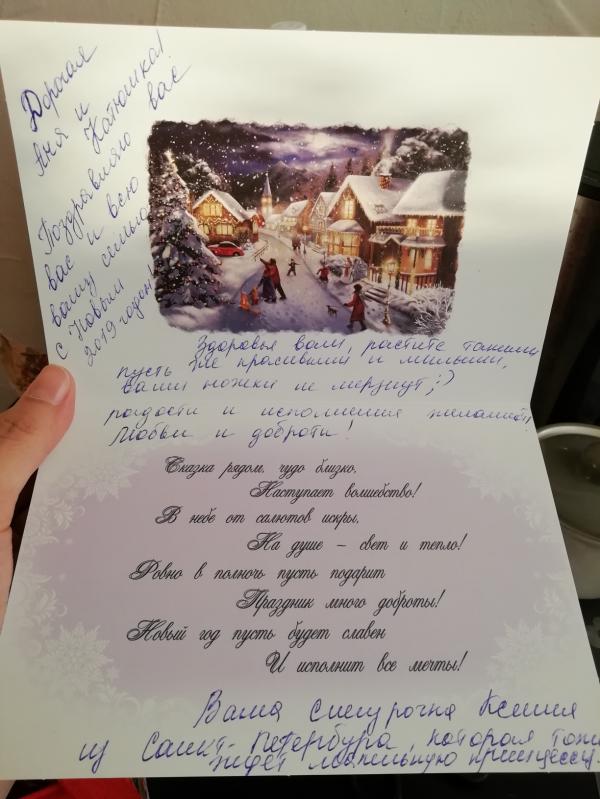 Дорогая
Аня и
Катюшка!
Поздравляю вас
вас и всю
вашу семью
с Новым
2019 годом!
Здоровья вам, растите такими
пусть же красивыми и милыми,
ваши ножки не мерзнут ;:)
радости и исполнения желаний!
Любви и доброты!
Сказка рядом, чудо близко,
Наступает волшебство!
В небе от салютов искры,
На душе – свет и тепло!
Ровно в полночь пусть подарит
Праздник много доброты!
Новый год пусть будет славен
И исполнит все мечты!
Ваша Снегурочка Ксения
из Санкт-Петербурга, которая
ждет маленькую принцессу